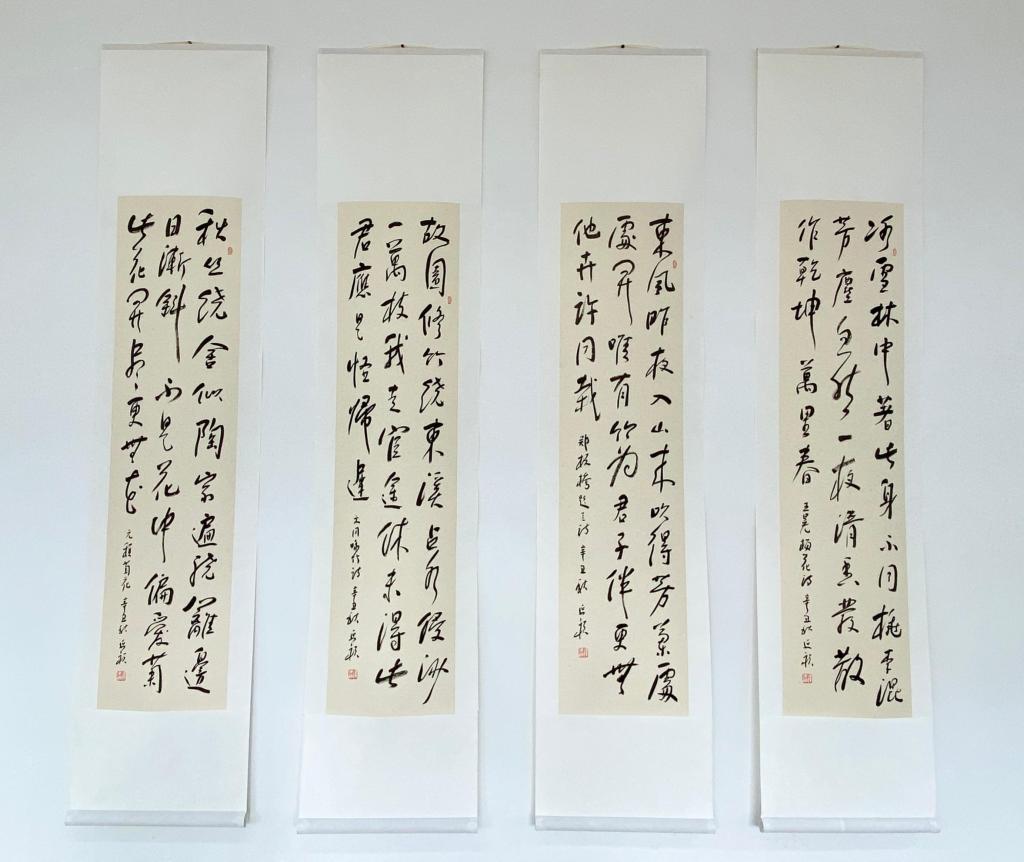 冰雪林中著此身不同桃李混
芳塵忽然一夜清香發散
作乾坤萬里春 王冕梅花詩 辛丑秋
東風昨夜入山來吹得芳蘭處
處開唯有竹為君子伴更無
他卉許同栽 鄭板橋題詩 辛丑秋
故園修竹繞東溪占水侵沙
一萬枝我走官途休未得此
君應是怪歸遲 文同詠竹詩 辛丑秋
秋丛繞舍似陶家遍繞籬邊
日漸斜不是花中偏愛菊
此花開盡更無花 元稹菊花 辛丑秋